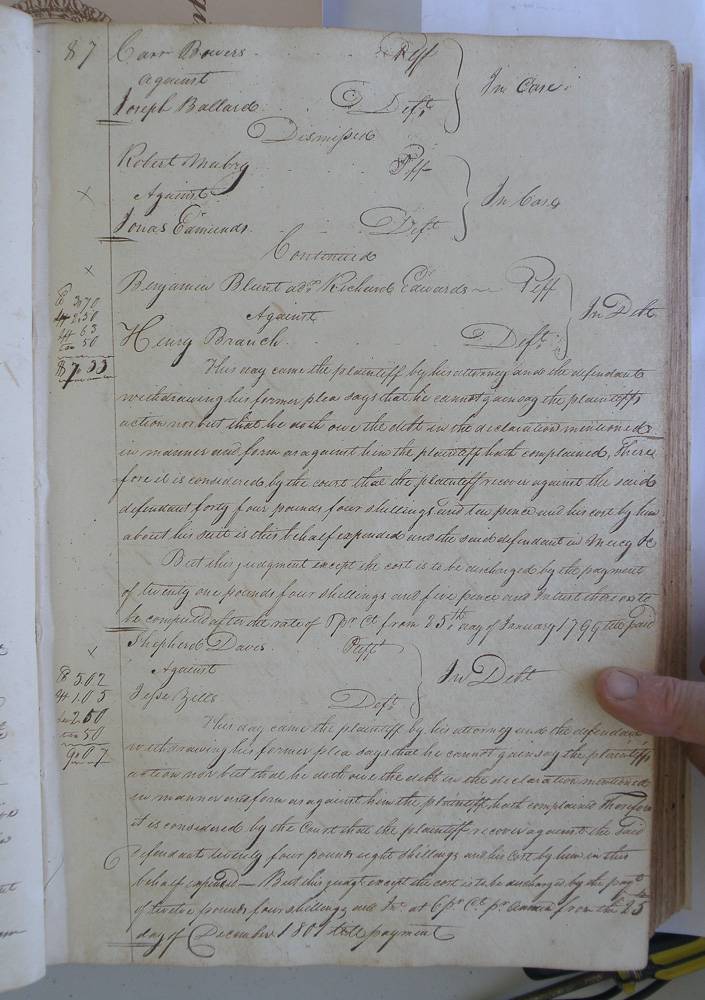 87 Carr Bowers Plff
against In Case
Joseph Ballard Deft
Dismissed
Robert Mabry Plff
Against In Case
Jonas Edmunds Deft
Continued
Benjamin Blunt adm Richard Edwards Plff
Against In Debt
Henry Branch Deft
$ 3,70
2,50
63
50
$7.33
This day came the plaintiff by his attorney and the defendant
withdrawing his former plea says that he cannot gainsay the plaintiffs
action nor but that he doth owe the debt in the declaration mentioned
in manner and form as against him the plaintiff hath complained, There
fore it is considered by the court that the plaintiff recover against the said
defendant forty four pounds four shillings and ten pence and his cost by him
about his suit in this behalf expended and the said defendant in Mercy &c
But this judgment except the cost is to be discharged by the payment
of twenty one pounds four shillings and five pence and Interest thereon to
be computed after the rate of 5 pr Ct from 25th day of January 1799 till paid
Shepherd Davis Plff
Against In Debt
Deft
$ 5.02
1.05
2.50
50
9.07
This day came the plaintiff by his attorney and the defendant
withdrawing his former plea says that he cannot gainsay the plaintiffs
action nor but that he doth owe the debt in the declaration mentioned
in manner and form as against him the plaintiff hath complained Therefore
it is considered by the Court that the plaintiff recover against the said
defendant twenty four pounds eight shillings and his Cost by him in this
behalf expended — But this judgt except the cost is to be discharged by the paymt
of twelve pounds four shillings and Int at 6 pr Ct pr Annum from the 25
day of December 1801 till payment